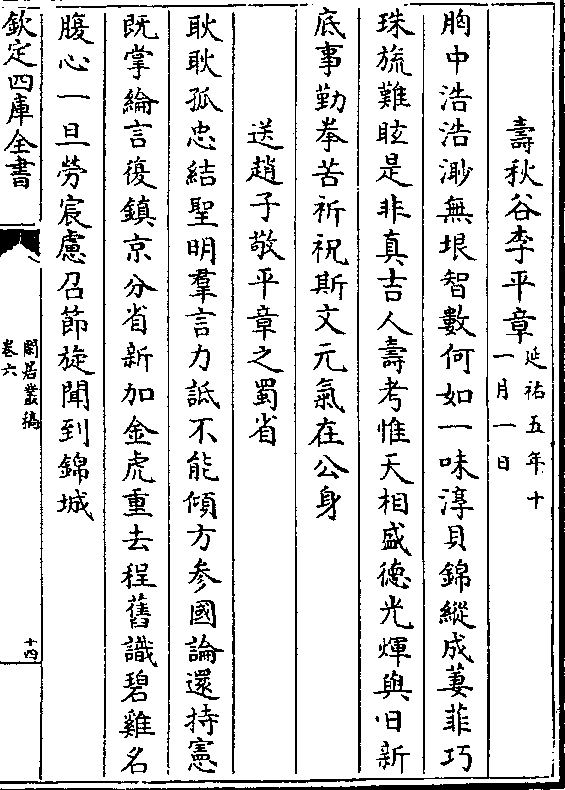 壽秋谷李平章延祐五年十
一月一日
胸中浩浩渺無垠智數何如一味淳貝錦縱成萋菲巧
珠旒難眩是非真吉人壽考惟天相盛德光煇與日新
底事勤拳苦祈祝斯文元氣在公身
送趙子敬平章之蜀省
耿耿孤忠結聖明羣言力詆不能傾方參國論還持憲
既掌綸言復鎮京分省新加金虎重去程舊識碧雞名
腹心一旦勞宸慮召節旋聞到錦城
欽定四庫全書
閒居叢稿
卷六
十四